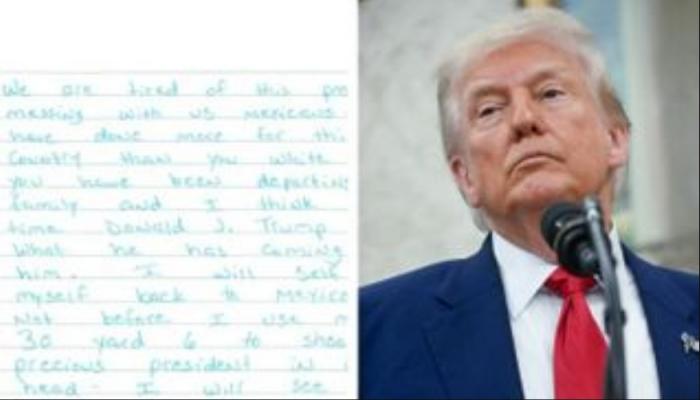 We are tired of this pre
messing with us mexicans
have done more for thi
Country than you white
you have been deportin
family and I think
time Donald J. Trump
What he has coming
him. I will self
myself back to Mexico
Not before I use m
30 yard 6 to shoo
precious president in
head - I will see